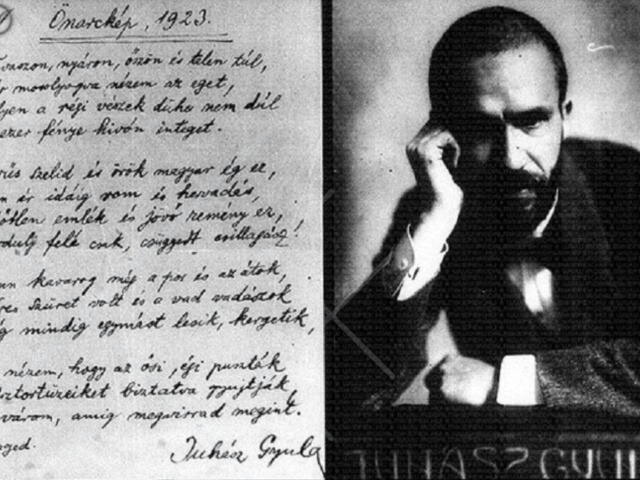 Önarckép, 1923.
Tavaszon, nyáron, őszön és telen túl,
már mosolyogva nézem az eget,
melyen a régi vészek dühe nem dúl
s ezer fénye hívón integet.
szelid és örök magyar ég ez,
ér idáig rom és hervadás,
emlék és jövő remény ez,
fordulj felé csak, csüggedt csillagász!
kavarog még a por és az átok,
szüret volt és a vad vadászok
még mindig egymást lesik, kergetik,
nézem, hogy az ősi, égi puszták
pásztortüzeiket biztatva gyujtják,
várom, amig megvirrad megint.
Szeged.
Juhász Gyula
JUHÁSZ GYULA